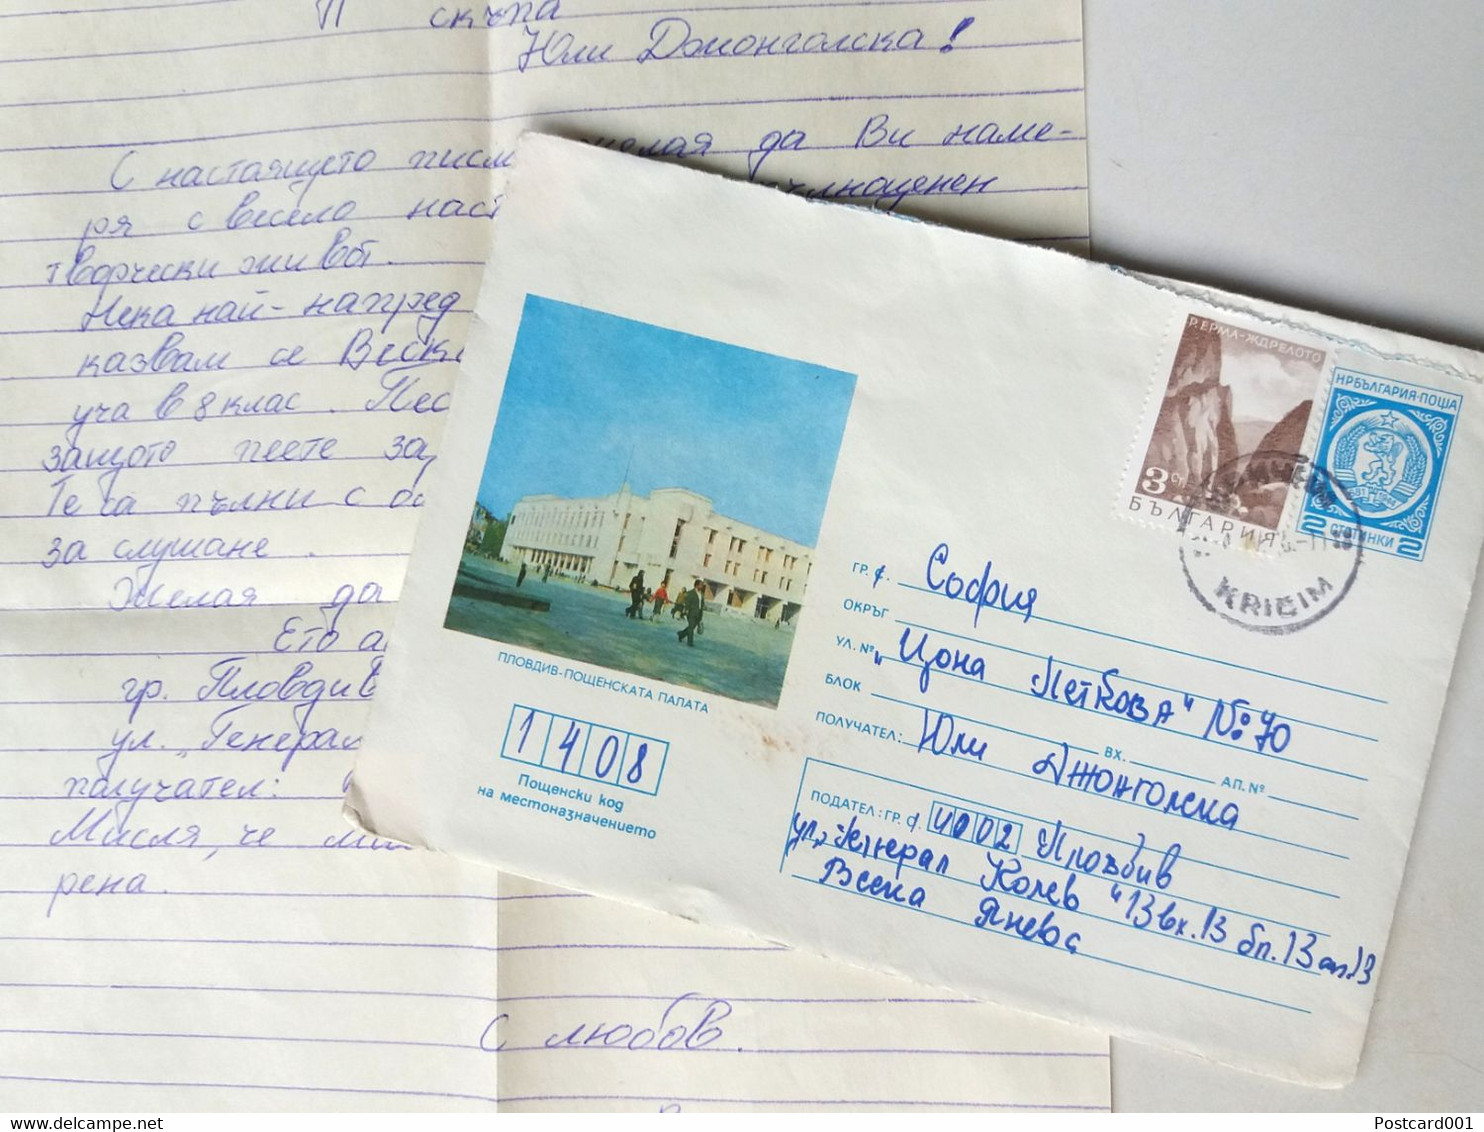 скъпа
Юли Донгонлска!
С настоящето писм желая да Ви наме-
ря с весело наст ълноценен
творчески живот.
Нека най-напред
казвам се Веск
уча в 8 клас. Пес
защото пеете за
Те са пълни с
за слушане.
Желая да
Ето а
гр. Пловдив
ул. "Генерал
получател:
Мисля, че
рена.
С любов.
Р. ЕРМА-ЖДРЕЛОТО
3 СТ
БЪЛГАРИЯ
НР БЪЛГАРИЯ·ПОЩА
2 СТОТИНКИ 2
KRIČIM
ПЛОВДИВ-ПОЩЕНСКАТА ПАЛАТА
1408
Пощенски код
на местоназначението
ГР. С. София
ОКРЪГ
УЛ. № "Цона Петкова" №: 70
БЛОК ВХ. АП. №
ПОЛУЧАТЕЛ: Юли Джонголска
ПОДАТЕЛ: ГР. С. 4002 Пловдив
ул. "Генерал Колев" 13 вх. 13 бл. 13 ап. 13
Веска Янева
Postcard001